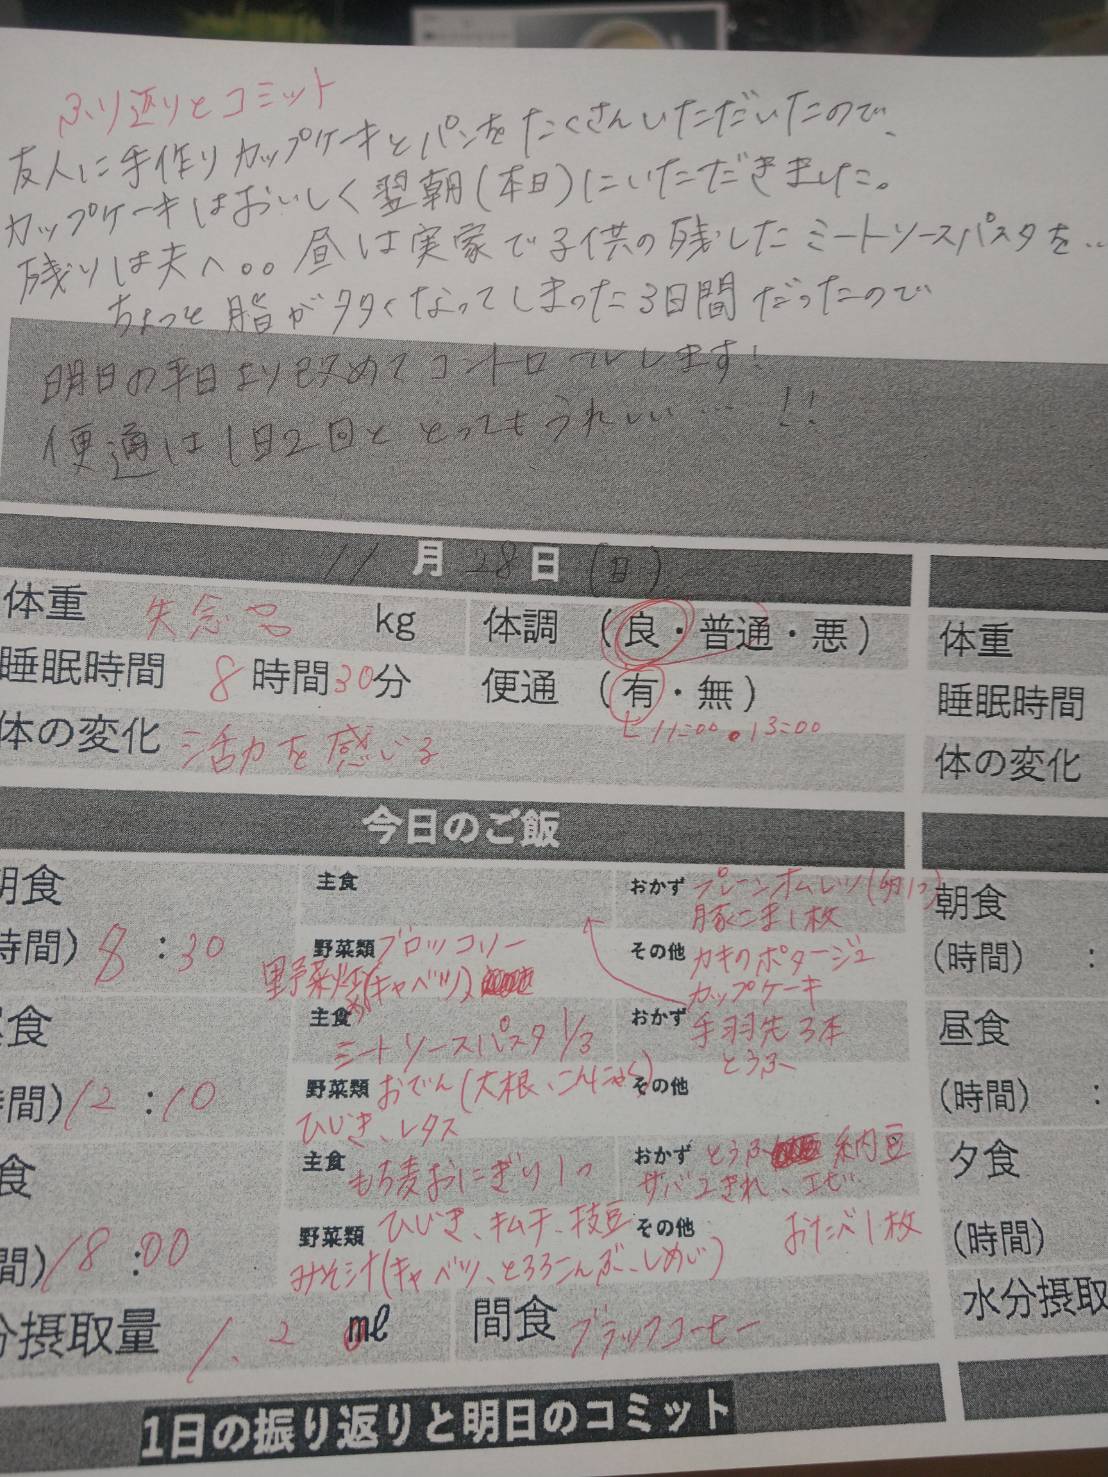 ふり返りとコミット
友人に手作りカップケーキとパンをたくさんいただいたので、
カップケーキはおいしく翌朝(本日)にいただきました。
残りは夫へ。。昼は実家で子供の残したミートソースパスタを..
ちょっと脂が多くなってしまった3日間だったので
明日の平日より改めてコントロールします!
便通は1日2回ととってもうれしい…!!
11月28日(日)
体重 失念 kg 体調 (良・普通・悪) 体重
睡眠時間 8時間30分 便通 (有・無) 睡眠時間
11:00 . 13:00
体の変化 活力を感じる 体の変化
今日のご飯
朝食 主食 おかず プレーンオムレツ(卵1つ) 朝食
豚こま1枚
時間) 8:30 野菜類 ブロッコリー その他 カキのポタージュ (時間) :
野菜炒め(キャベツ) カップケーキ
食 主食 ミートソースパスタ1/3 おかず 手羽先3本 昼食
とうふ
間) 12:10 野菜類 おでん(大根、こんにゃく) その他 (時間) :
ひじき、レタス
食 主食 もち麦おにぎり1つ おかず とうふ 納豆 夕食
サバ2きれ、エビ
間) 18:00 野菜類 ひじき、キムチ、枝豆 その他 おたべ1枚 (時間)
みそ汁(キャベツ、とろろこんぶ、しめじ)
分摂取量 1.2 ml 間食 ブラックコーヒー 水分摂取
1日の振り返りと明日のコミット